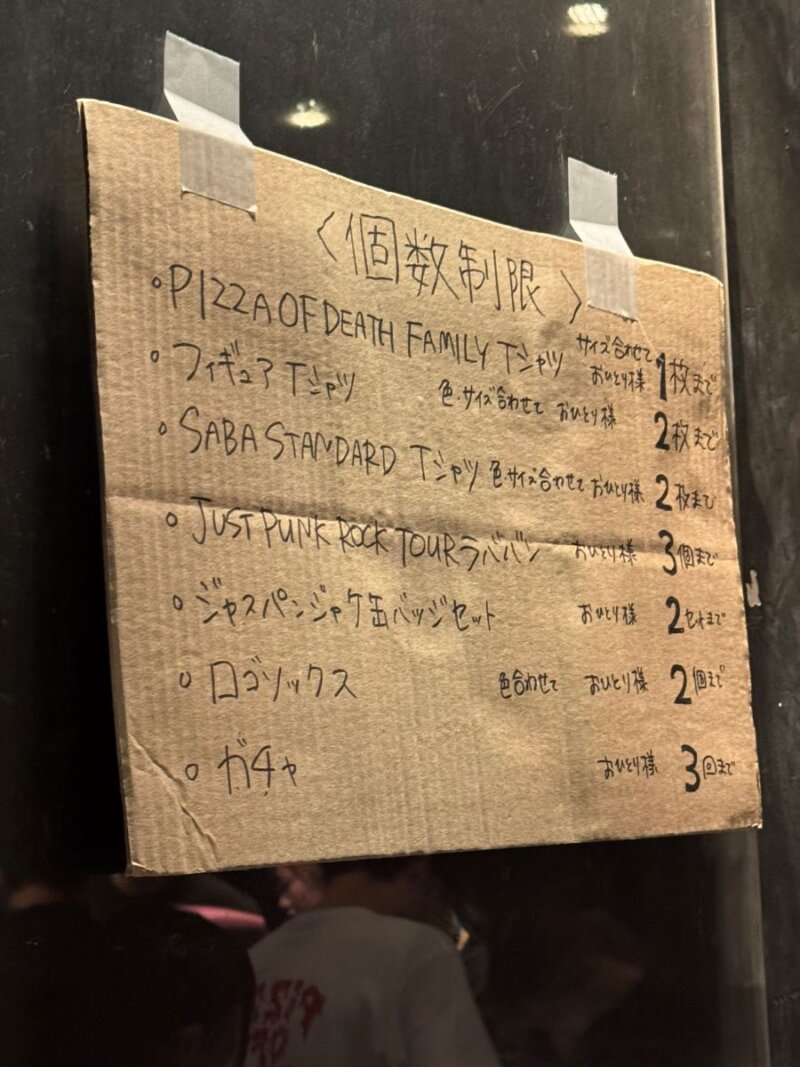 〈個数制限〉
。PIZZA OF DEATH FAMILY Tシャツ サイズ合わせて おひとり様 1枚まで
。フィギュア Tシャツ 色・サイズ合わせて おひとり様 2枚まで
。SABA STANDARD Tシャツ 色・サイズ合わせて おひとり様 2枚まで
。JUST PUNK ROCK TOURラババン おひとり様 3個まで
。ジャスパンジャケ缶バッジセット おひとり様 2セットまで
。ロゴソックス 色合わせて おひとり様 2個まで
。ガチャ おひとり様 3回まで